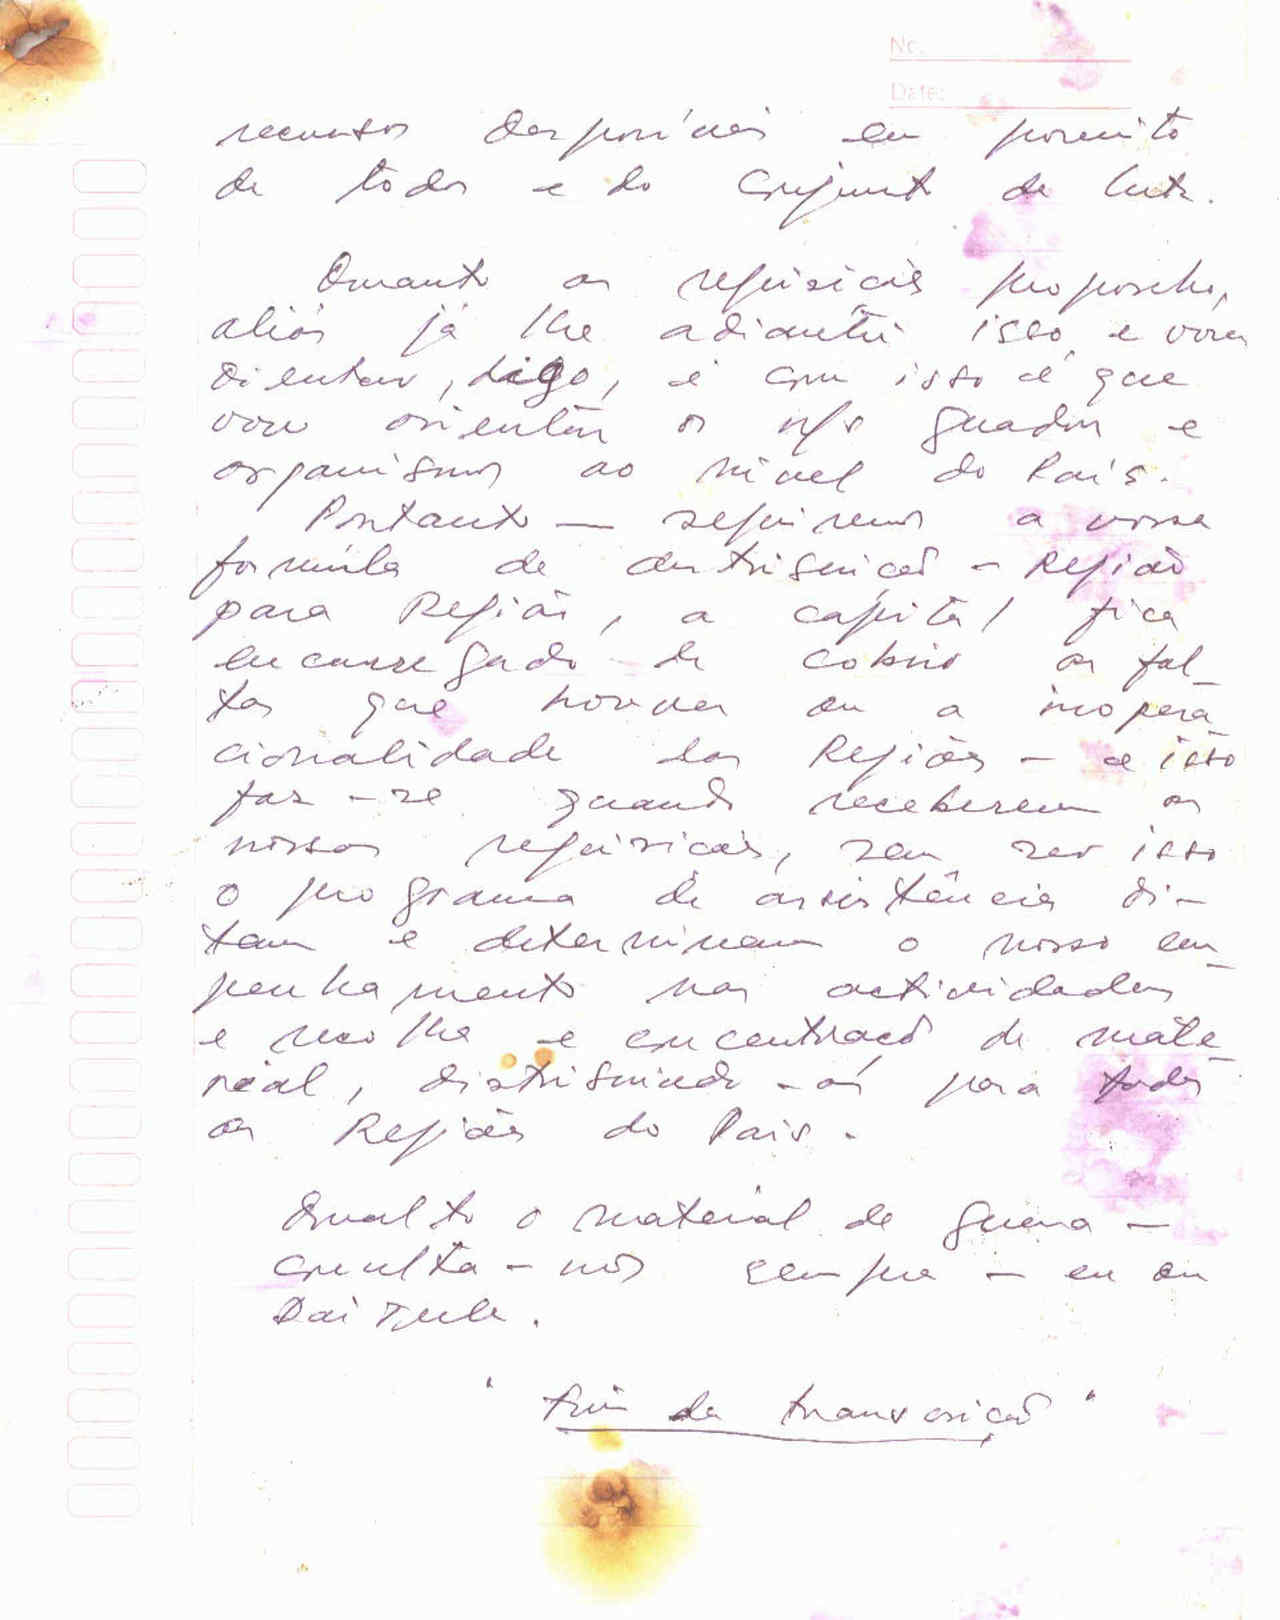 No.
Date:
recursos disponíveis em proveito
de todos e do conjunto da luta.
Quanto as requisições propostas,
aliás já lhe adiantei isso, e vou
orientar, digo, é com isso é que
vou orientar os n/s quadros e
organismos ao nível do País.
Portanto — seguiremos a vossa
formúla de distribuição - Região
para Região, a capital fica
encarregado de cobrir as fal-
tas que houver ou a inopera-
cionalidade das Regiões - e isso
faz-se quando receberem as
nossas requisições, sem ser isso
o programa de assistência di-
tam e determinam o nosso em-
penhamento nas actividades
e recolha e concentração de mate-
rial, distribuindo-os para todas
as Regiões do País.
Qualto o material de guerra -
consulta-nos sempre - eu ou
Dai Tula.
"Fim da transcrição"